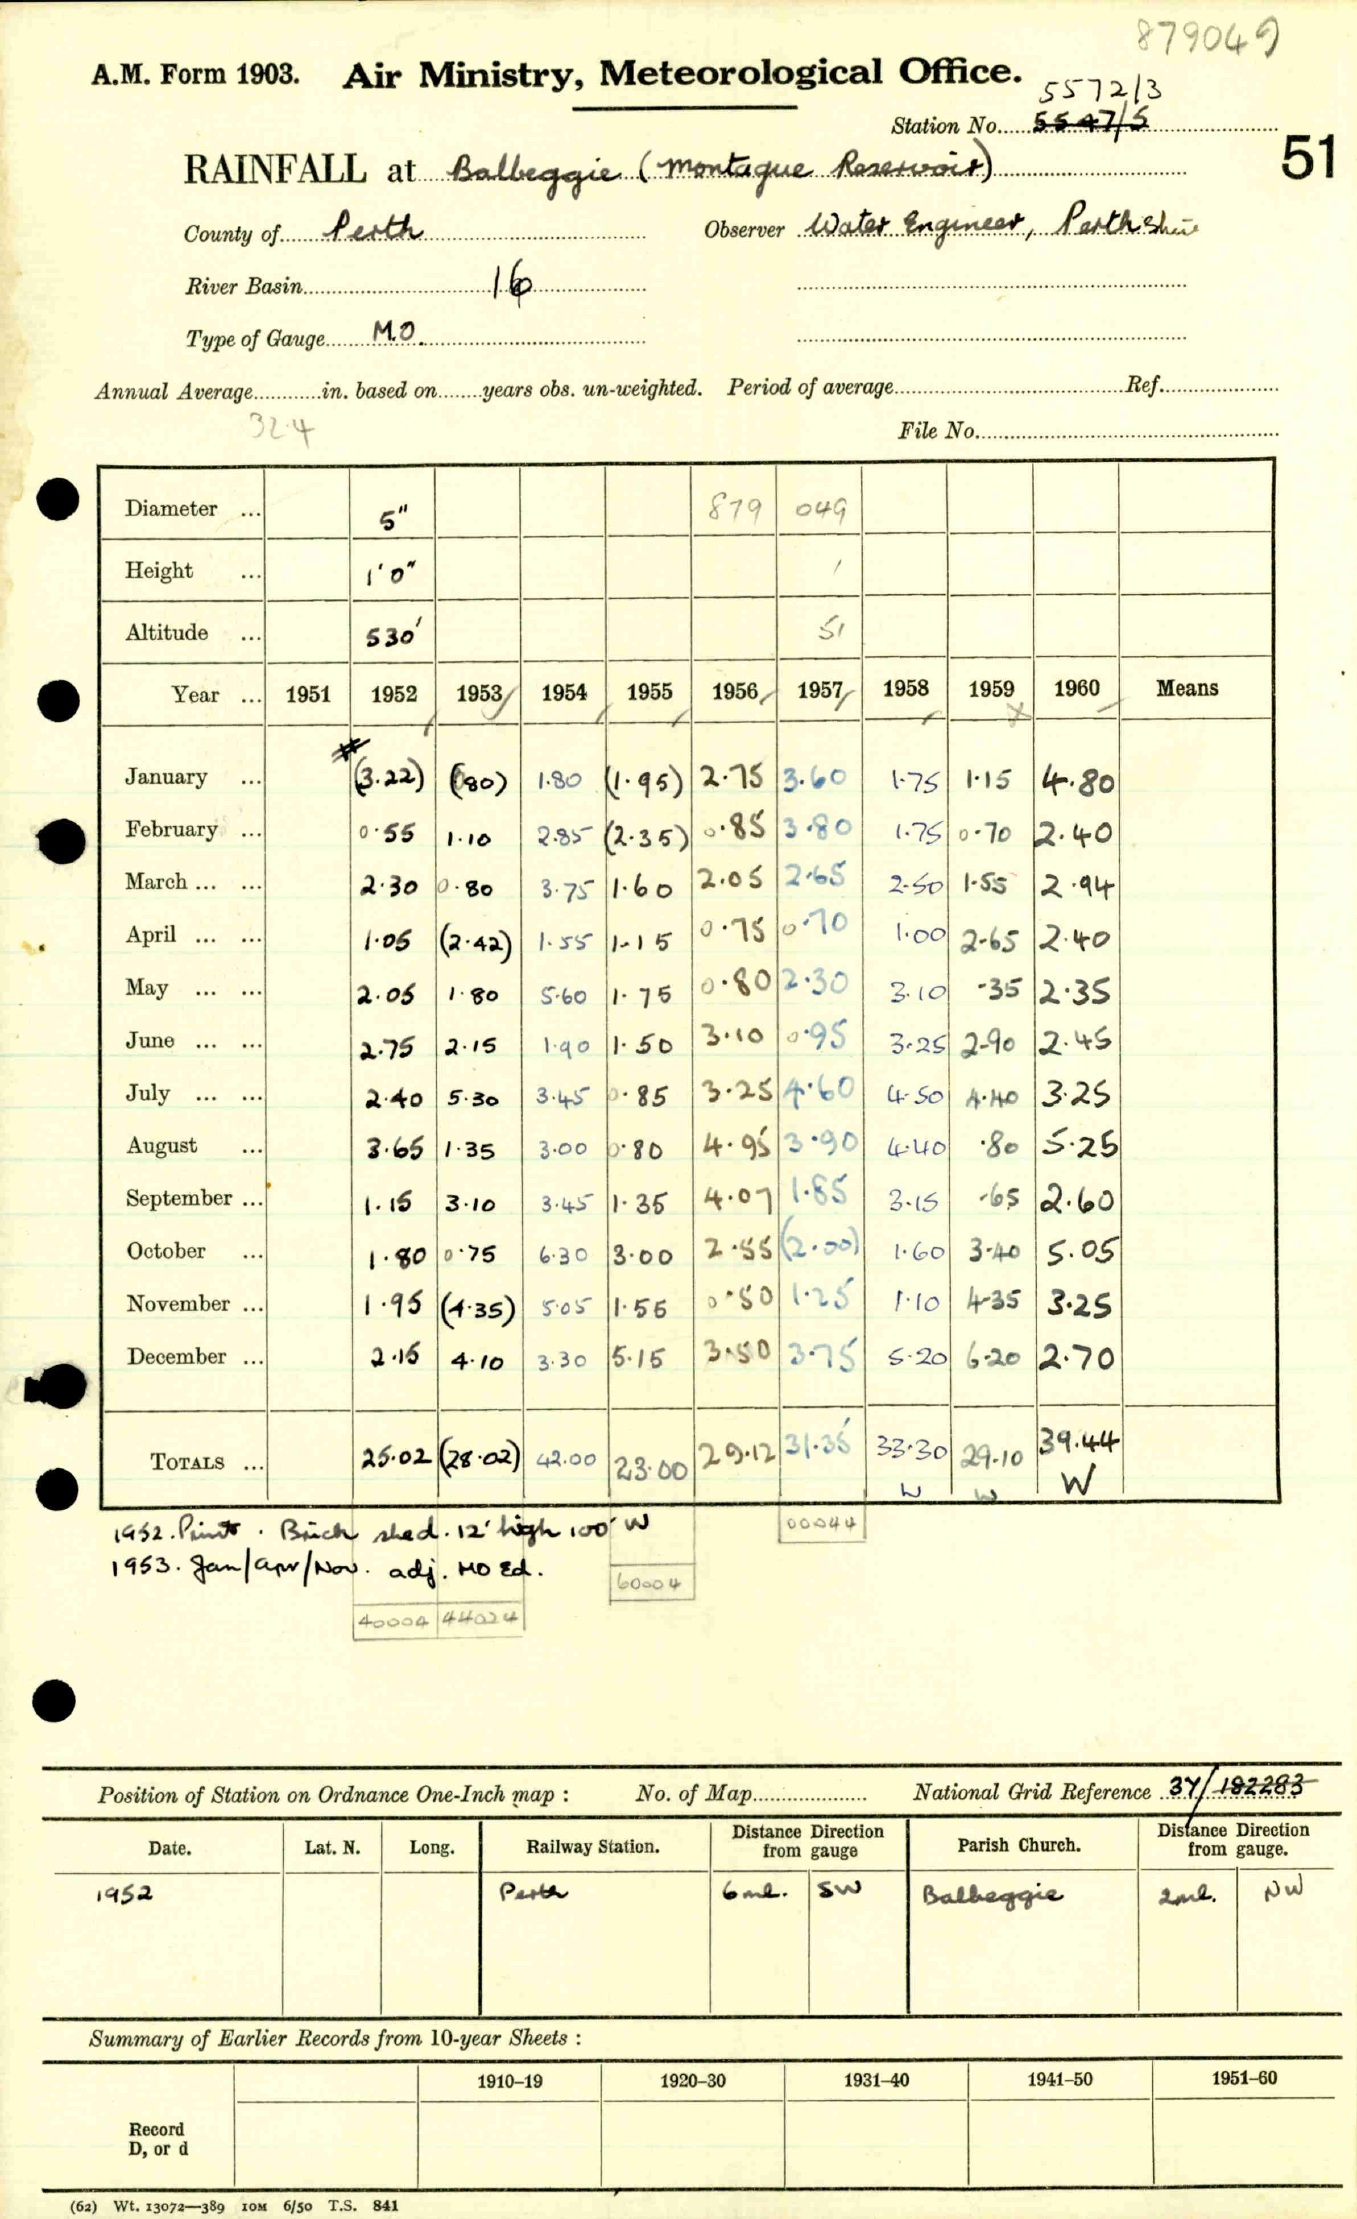 879049
A.M. Form 1903. Air Ministry, Meteorological Office.
5572/3
Station No. 5547/5
51
RAINFALL at Balbeggie (Montague Reservoir)
County of Perth Observer Water Engineer, Perthshire
River Basin 16
Type of Gauge M.O.
Annual Average in. based on years obs. un-weighted. Period of average Ref.
32.4
File No.
Diameter ... 5" 879 049
Height ... 1'0" 1
Altitude ... 530' 51
Year ... 1951 1952 1953 1954 1955 1956 1957 1958 1959 1960 Means
January ... (3.22) (.80) 1.80 (1.95) 2.75 3.60 1.75 1.15 4.80
February ... 0.55 1.10 2.85 (2.35) 0.85 3.80 1.75 0.70 2.40
March ... ... 2.30 0.80 3.75 1.60 2.05 2.65 2.50 1.55 2.94
April ... ... 1.05 (2.42) 1.55 1.15 0.75 0.70 1.00 2.65 2.40
May ... ... 2.05 1.80 5.60 1.75 0.80 2.30 3.10 .35 2.35
June ... ... 2.75 2.15 1.90 1.50 3.10 0.95 3.25 2.90 2.45
July ... ... 2.40 5.30 3.45 0.85 3.25 4.60 4.50 4.40 3.25
August ... 3.65 1.35 3.00 0.80 4.95 3.90 4.40 .80 5.25
September ... 1.15 3.10 3.45 1.35 4.07 1.85 3.15 .65 2.60
October ... 1.80 0.75 6.30 3.00 2.55 (2.00) 1.60 3.40 5.05
November ... 1.95 (4.35) 5.05 1.55 0.50 1.25 1.10 4.35 3.25
December ... 2.15 4.10 3.30 5.15 3.50 3.75 5.20 6.20 2.70
TOTALS ... 25.02 (28.02) 42.00 23.00 29.12 31.35 33.30 29.10 39.44
W W W
1952. Brick shed. 12' high 100' W
00044
1953. Jan/Apr/Nov. adj. MO Ed.
60004
40004 44024
Position of Station on Ordnance One-Inch map : No. of Map National Grid Reference 37/182283
Date. Lat. N. Long. Railway Station. Distance from gauge Direction Parish Church. Distance from gauge. Direction
1952 Perth 6 ml. SW Balbeggie 2 ml. NW
Summary of Earlier Records from 10-year Sheets :
1910–19 1920–30 1931–40 1941–50 1951–60
Record
D, or d
(62) Wt. 13072—389 10M 6/50 T.S. 841